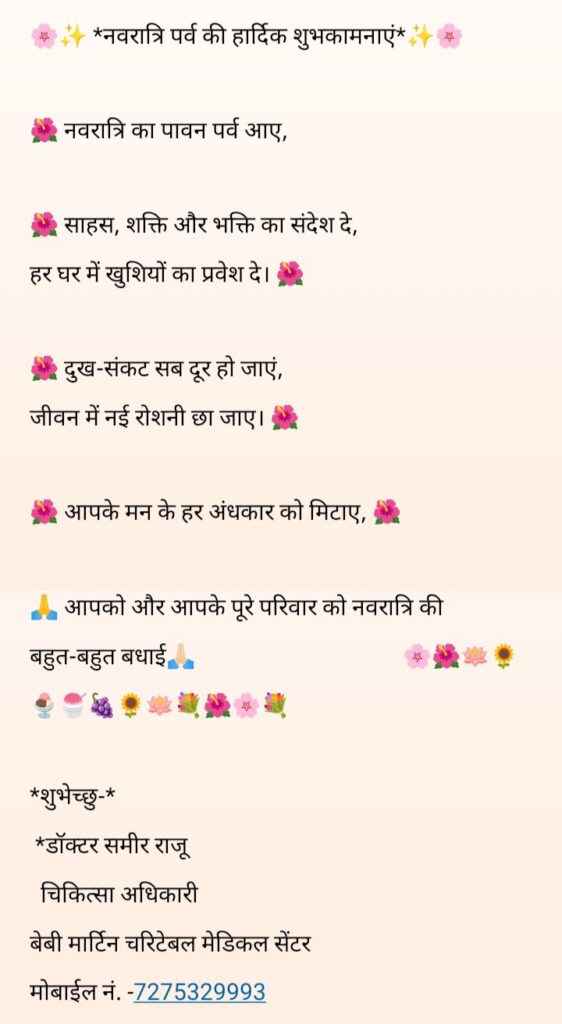 🌸✨ *नवरात्रि पर्व की हार्दिक शुभकामनाएं*✨🌸
🌺 नवरात्रि का पावन पर्व आए,
🌺 साहस, शक्ति और भक्ति का संदेश दे,
हर घर में खुशियों का प्रवेश दे। 🌺
🌺 दुख-संकट सब दूर हो जाएं,
जीवन में नई रोशनी छा जाए। 🌺
🌺 आपके मन के हर अंधकार को मिटाए, 🌺
🙏 आपको और आपके पूरे परिवार को नवरात्रि की
बहुत-बहुत बधाई🙏🏼 🌸🌺🪷🌻
🍨🍧🍇🌻🪷💐🌺🌸💐
*शुभेच्छु-*
*डॉक्टर समीर राजू
चिकित्सा अधिकारी
बेबी मार्टिन चरिटेबल मेडिकल सेंटर
मोबाईल नं. -7275329993